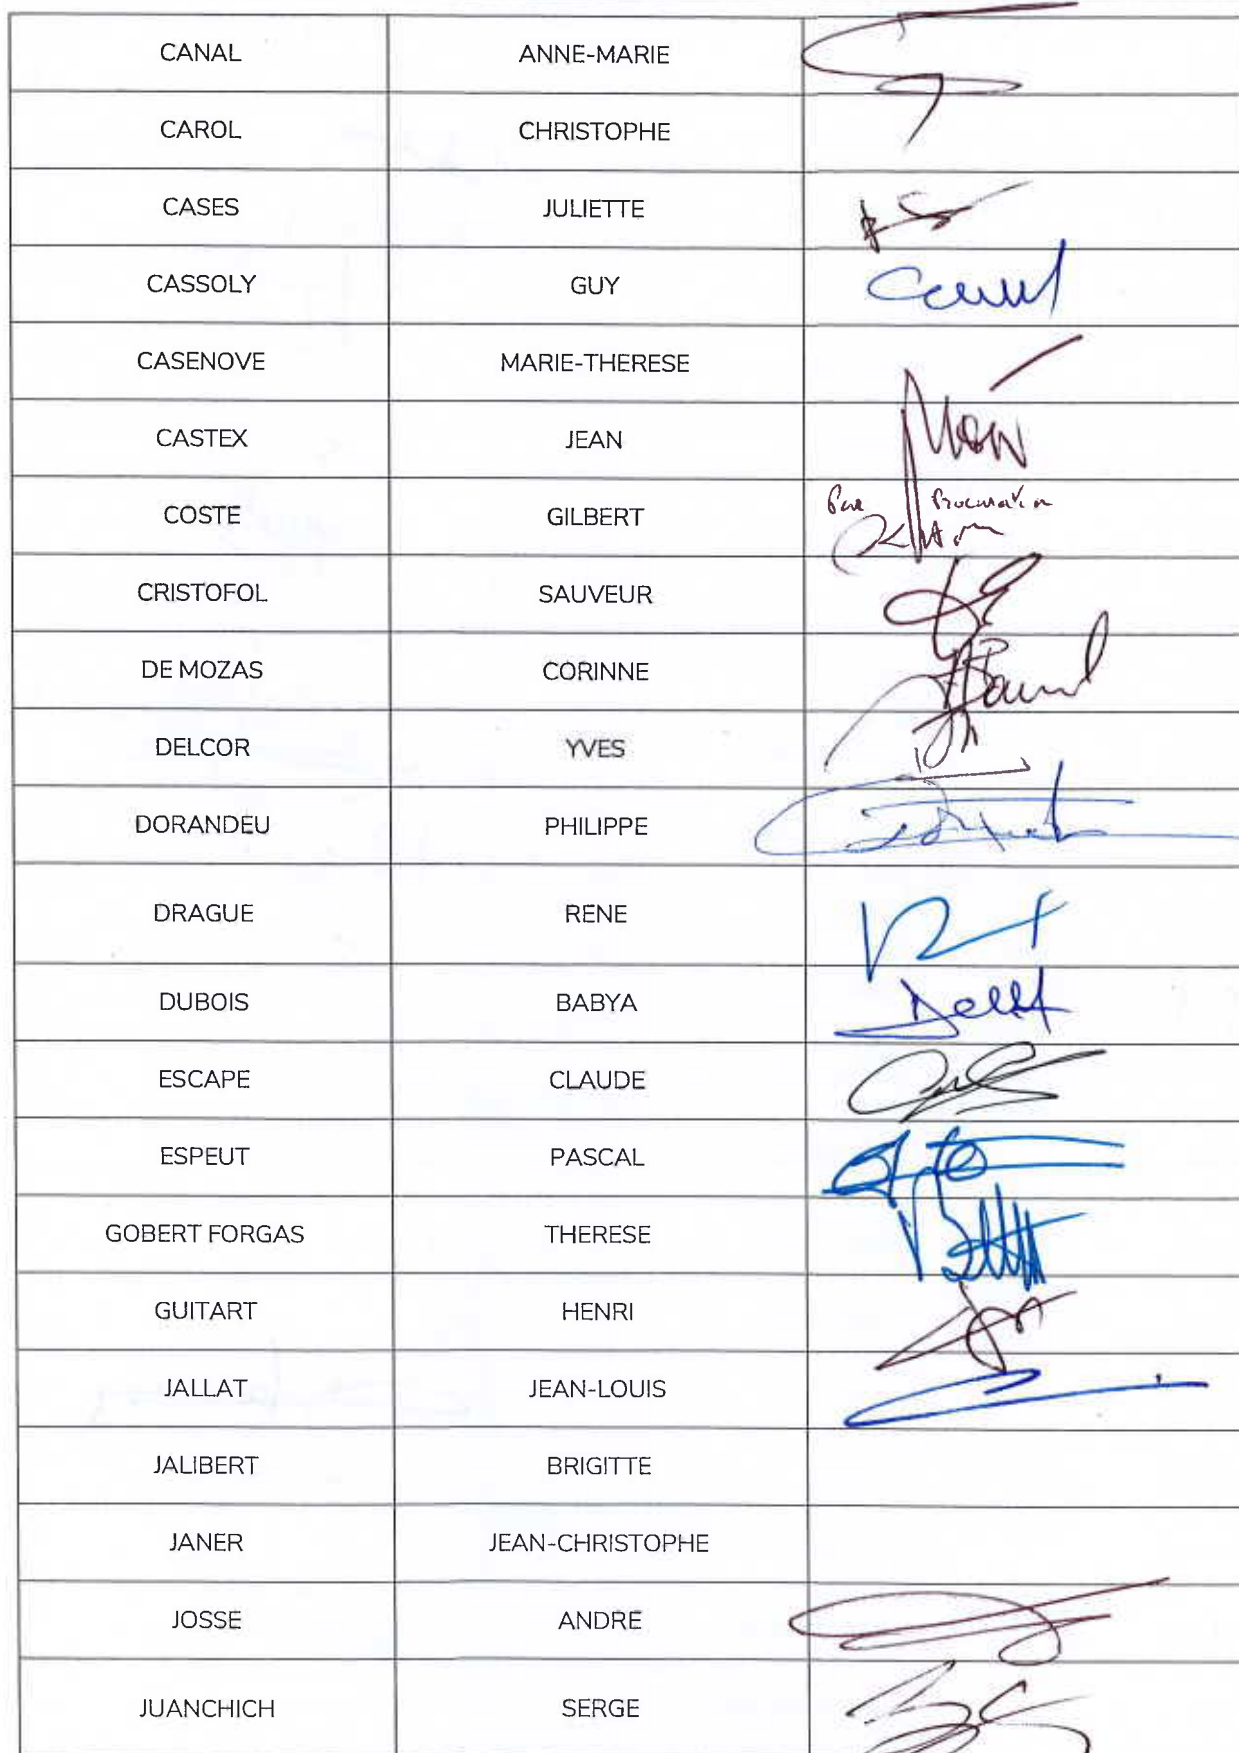 CANAL ANNE-MARIE
CAROL CHRISTOPHE
CASES JULIETTE
CASSOLY GUY
CASENOVE MARIE-THERESE
CASTEX JEAN
COSTE GILBERT Par Procuration
CRISTOFOL SAUVEUR
DE MOZAS CORINNE
DELCOR YVES
DORANDEU PHILIPPE
DRAGUE RENE
DUBOIS BABYA
ESCAPE CLAUDE
ESPEUT PASCAL
GOBERT FORGAS THERESE
GUITART HENRI
JALLAT JEAN-LOUIS
JALIBERT BRIGITTE
JANER JEAN-CHRISTOPHE
JOSSE ANDRE
JUANCHICH SERGE